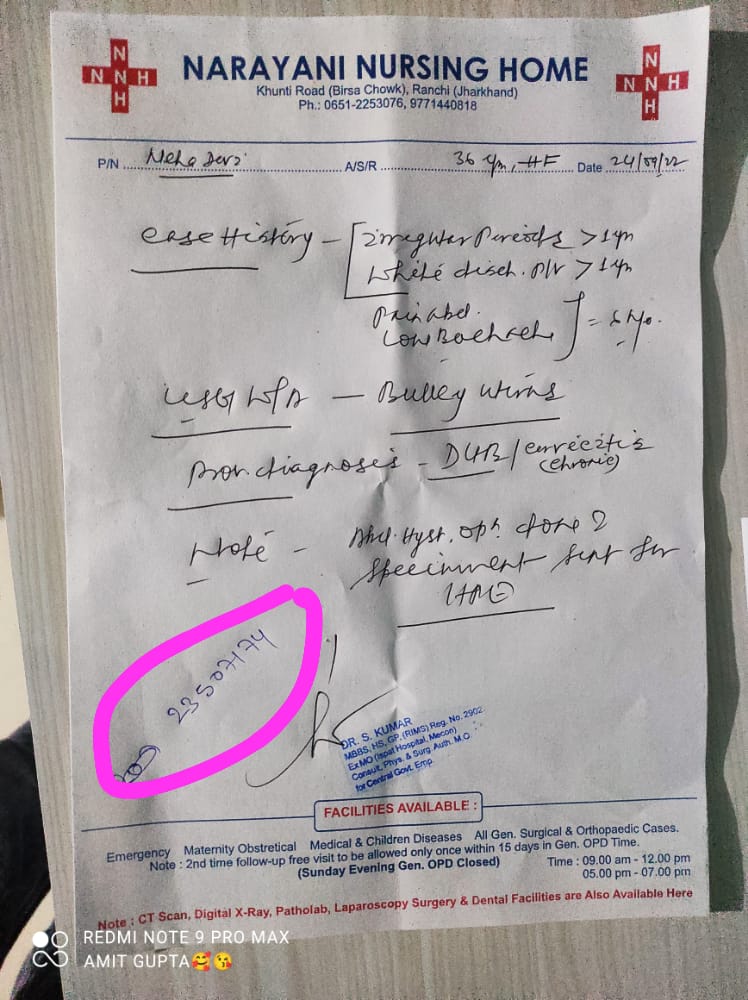 N
N N H
H
NARAYANI NURSING HOME
Khunti Road (Birsa Chowk), Ranchi (Jharkhand)
Ph.: 0651-2253076, 9771440818
N
N N H
H
P/N Neha Devi A/S/R 36 yrs, HF Date 24/09/22
Case History - Irregular Periods > 1 yr
White disch. P/V > 1 yr
Pain abd.
Low Backache
USG W/A - Bulky Uterus
Prov. diagnosis - DUB/cervicitis
(chronic)
Note - Abd. Hyst. opn. done &
Specimen sent for
HPE
23507174
DR. S. KUMAR
MBBS, HS, GP, (RIMS) Reg. No. 2902
Ex MO (Ispat Hospital, Mecon)
Consult, Phys. & Surg. Auth. M.O.
for Central Govt. Emp.
FACILITIES AVAILABLE :
Emergency Maternity Obstretical Medical & Children Diseases All Gen. Surgical & Orthopaedic Cases.
Note : 2nd time follow-up free visit to be allowed only once within 15 days in Gen. OPD Time.
(Sunday Evening Gen. OPD Closed) Time : 09.00 am - 12.00 pm
05.00 pm - 07.00 pm
Note : CT Scan, Digital X-Ray, Patholab, Laparoscopy Surgery & Dental Facilities are Also Available Here
REDMI NOTE 9 PRO MAX
AMIT GUPTA🥰😘